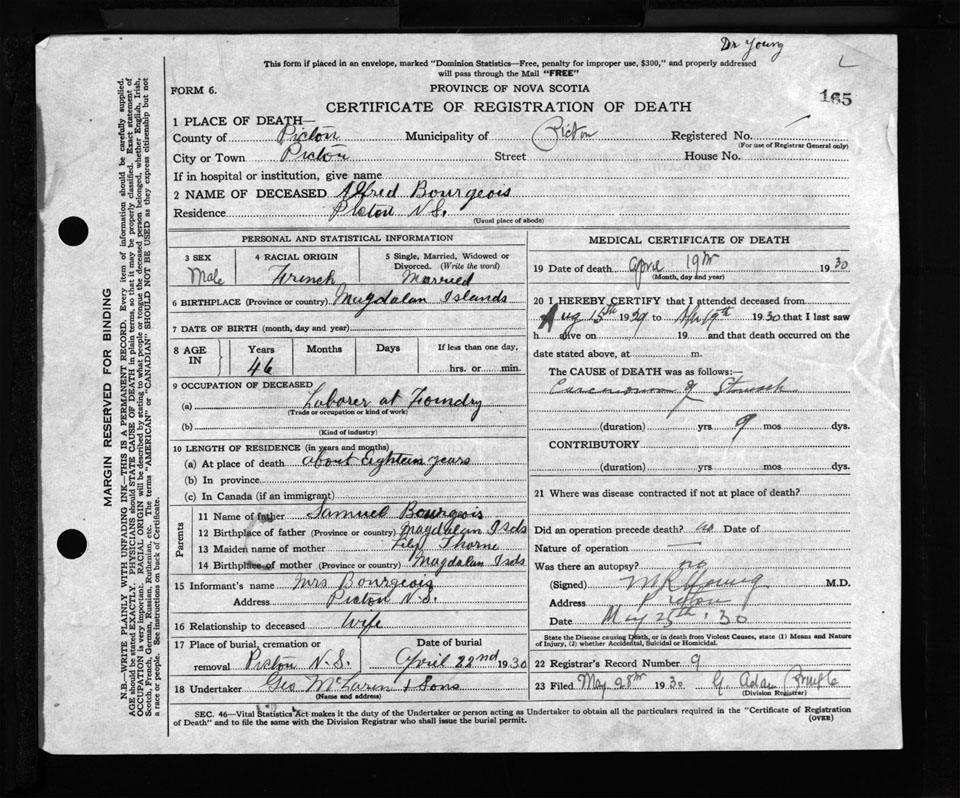 Dr Young
L
This form if placed in an envelope, marked "Dominion Statistics—Free, penalty for improper use, $300," and properly addressed
will pass through the Mail "FREE"
FORM 6.
PROVINCE OF NOVA SCOTIA
165
CERTIFICATE OF REGISTRATION OF DEATH
1 PLACE OF DEATH—
County of Pictou Municipality of Pictou Registered No.
(For use of Registrar General only)
City or Town Pictou Street House No.
If in hospital or institution, give name
2 NAME OF DECEASED Alfred Bourgeois
Residence Pictou N.S.
(Usual place of abode)
PERSONAL AND STATISTICAL INFORMATION
3 SEX 4 RACIAL ORIGIN 5 Single, Married, Widowed or
Divorced. (Write the word)
Male French Married
6 BIRTHPLACE (Province or country) Magdalan Islands
7 DATE OF BIRTH (month, day and year)
8 AGE IN Years Months Days If less than one day,
46 hrs. or min.
9 OCCUPATION OF DECEASED
(a) Laborer at Foundry
(Trade or occupation or kind of work)
(b)
(Kind of industry)
10 LENGTH OF RESIDENCE (in years and months)
(a) At place of death about Eighteen years
(b) In province
(c) In Canada (if an immigrant)
Parents
11 Name of father Samuel Bourgeois
12 Birthplace of father (Province or country) Magdalan Isds
13 Maiden name of mother Thorne
14 Birthplace of mother (Province or country) Magdalan Isds
15 Informant's name Mrs Bourgeois
Address Pictou N.S.
16 Relationship to deceased Wife
17 Place of burial, cremation or removal Pictou N.S. Date of burial April 22nd 1930
18 Undertaker Geo McLaren & Sons
(Name and address)
MEDICAL CERTIFICATE OF DEATH
19 Date of death April 19th 1930
(Month, day and year)
20 I HEREBY CERTIFY that I attended deceased from
Aug 15th 1929 to Apr 19th 1930 that I last saw
h alive on 19 and that death occurred on the
date stated above, at m.
The CAUSE of DEATH was as follows:—
Carcinoma of Stomach
(duration) yrs 9 mos dys.
CONTRIBUTORY
(duration) yrs. mos. dys.
21 Where was disease contracted if not at place of death?
Did an operation precede death? no Date of
Nature of operation —
Was there an autopsy? no
(Signed) M R Young M.D.
Address Pictou
Date May 25th 30
State the Disease causing Death, or in death from Violent Causes, state (1) Means and Nature
of Injury, (2) whether Accidental, Suicidal or Homicidal.
22 Registrar's Record Number 9
23 Filed May 28th 1930 G Adam
(Division Registrar)
SEC. 46—Vital Statistics Act makes it the duty of the Undertaker or person acting as Undertaker to obtain all the particulars required in the "Certificate of Registration
of Death" and to file the same with the Division Registrar who shall issue the burial permit.
(OVER)
MARGIN RESERVED FOR BINDING
N.B.—WRITE PLAINLY WITH UNFADING INK—THIS IS A PERMANENT RECORD. Every item of information should be carefully supplied.
AGE should be stated EXACTLY. PHYSICIANS should STATE CAUSE OF DEATH in plain terms, so that it may be properly classified. Exact statement of
OCCUPATION is very important. RACIAL ORIGIN will be described by stating to what people or tongue the deceased person belonged, whether English, Irish,
Scotch, French, German, Russian, Ruthenian, etc. The terms "AMERICAN" or "CANADIAN" SHOULD NOT BE USED as they express citizenship but not
a race or people. See instructions on back of Certificate.